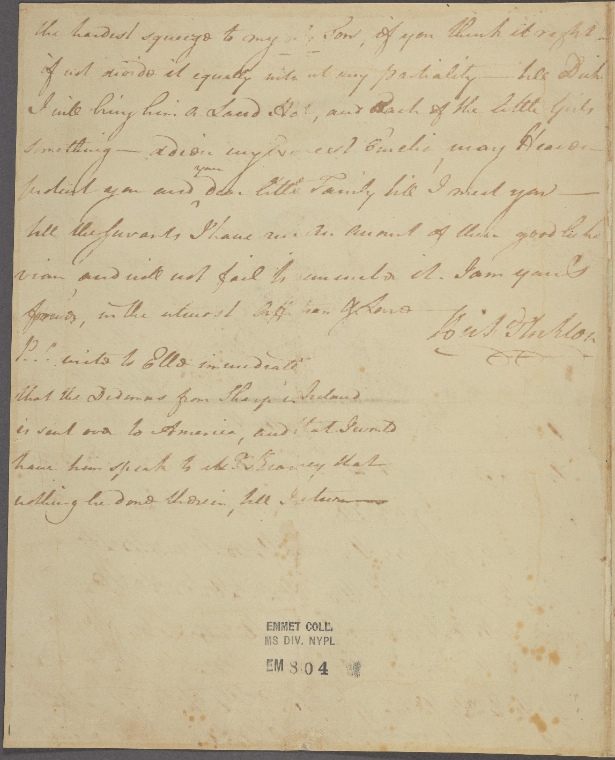 the hardest squeeze to my Son, if you think it right
if not divide it equally without any partiality — tell Dick
I will bring him a Laced Hat, and Each of the little Girls
something — adieu my Emelia, may Heaven
protect you and your dear little Family till I meet you —
tell the Servants I have an account of their good beha
viour, and will not fail to it. I am yours
forever, in the utmost of Love
Rich.d Stockton
P.S. write to Ellis immediate
that the Dedimus from Sharp in Ireland
is sent over to America, and that I would
have him speak to Kearney, that
nothing be done therein, till I return
EMMET COLL.
MS DIV. NYPL
EM 804